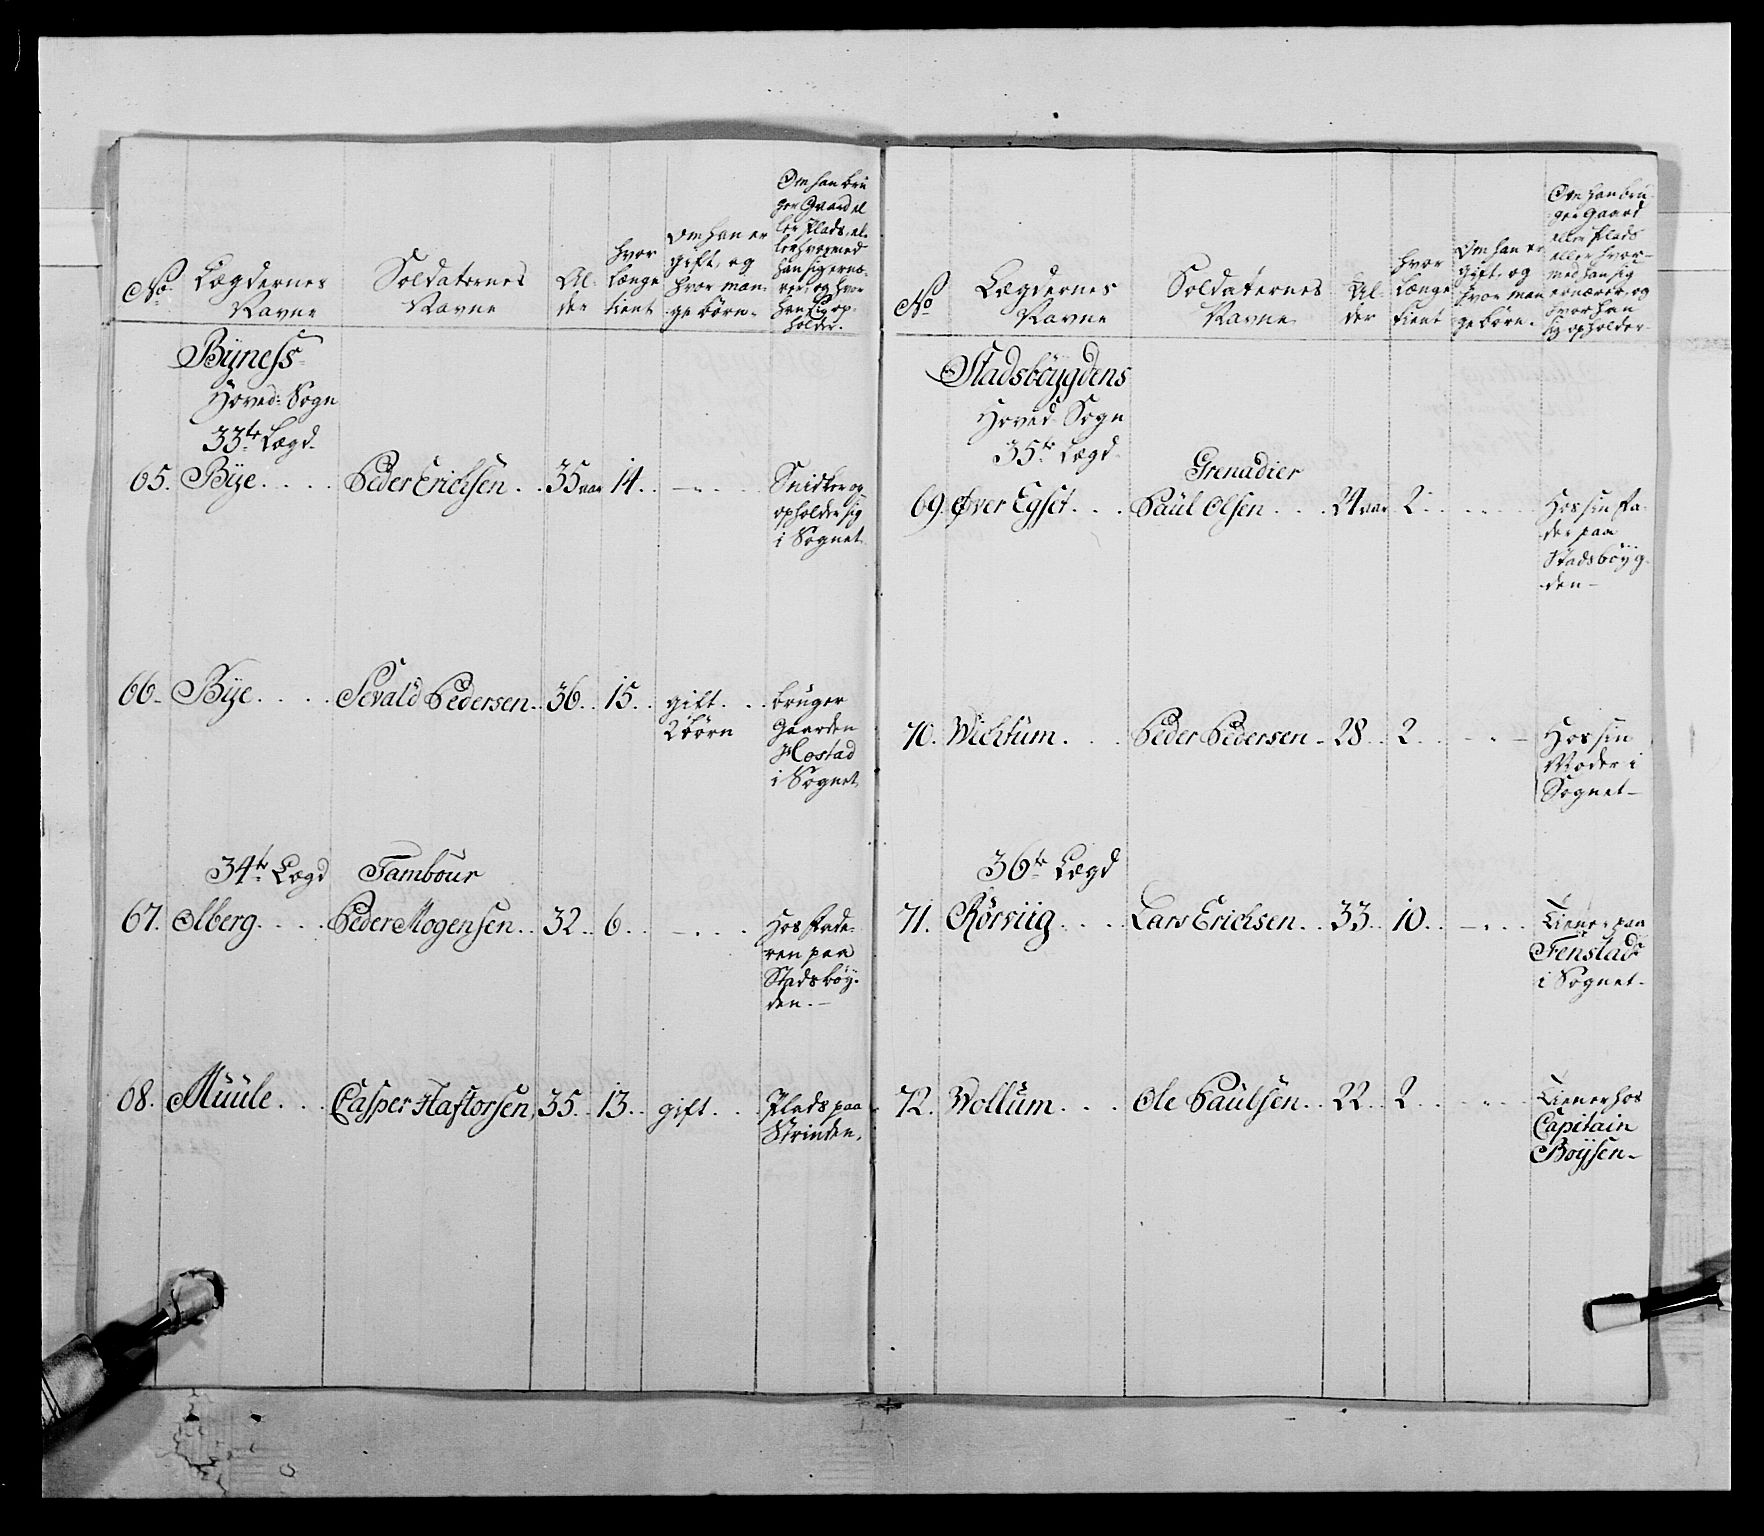 No
Lægdernes
Navne
Soldaternes
Navne
Al-
der
hvor
længe
tient
Om han er
gift, og
hvor man-
ge börn.
Om han bru
ger Gaard el
ler Plads, el-
ler hvormed
han sig ernæ-
rer, og hvor
han sig op-
holder.
Byness
Hoved-Sogn
33te Lægd
65. Bÿe .... Peder Erichsen .. 35 aar 14. - . . .
Snidker og
opholder sig
i Sognet
66. Bÿe .... Sevald Pedersen .. 36 .. 15 .. gift . . .
2 börn
bruger
Gaarden
Hostad
i Sognet
34te Lægd Tambour
67. Alberg .... Peder Mogensen .. 32 .. 6 .. - . . .
Hos Fade-
ren paa
Stadsböÿ-
den.-
68. Müüle ... Casper Haftorsen, 35 .. 13 .. gift ...
Plads paa
Strinden.
No
Lægdernes
Navne
Soldaternes
Navne
Al-
der
hvor
længe
tient
Om han er
gift, og
hvor man
ge börn.
Om han bru-
ger Gaard
eller Plads
eller hvor-
med han sig
ernærer, og
hvor han
sig opholder
Stadsböygdens
Hoved-Sogn
35te Lægd
Grenadier
69. Øver Egset ... Paül Olsen ... 24 aar 2 .. . . .
Hos sin Fa-
der paa
Stadsböÿg-
den-
70. Wichtum .... Peder Pedersen .. 28 .. 2 .. - . -
Hos sin
Moder i
Sognet-
36te Lægd
71. Rörviig .... Lars Erichsen .. 33 .. 10 .. - . . .
Tiener paa
Fenstad
i Sognet.
72. Wollüm ... Ole Paülsen .. 22 .. 2 .. . . .
Tiener hos
Capitain
Boÿsen-